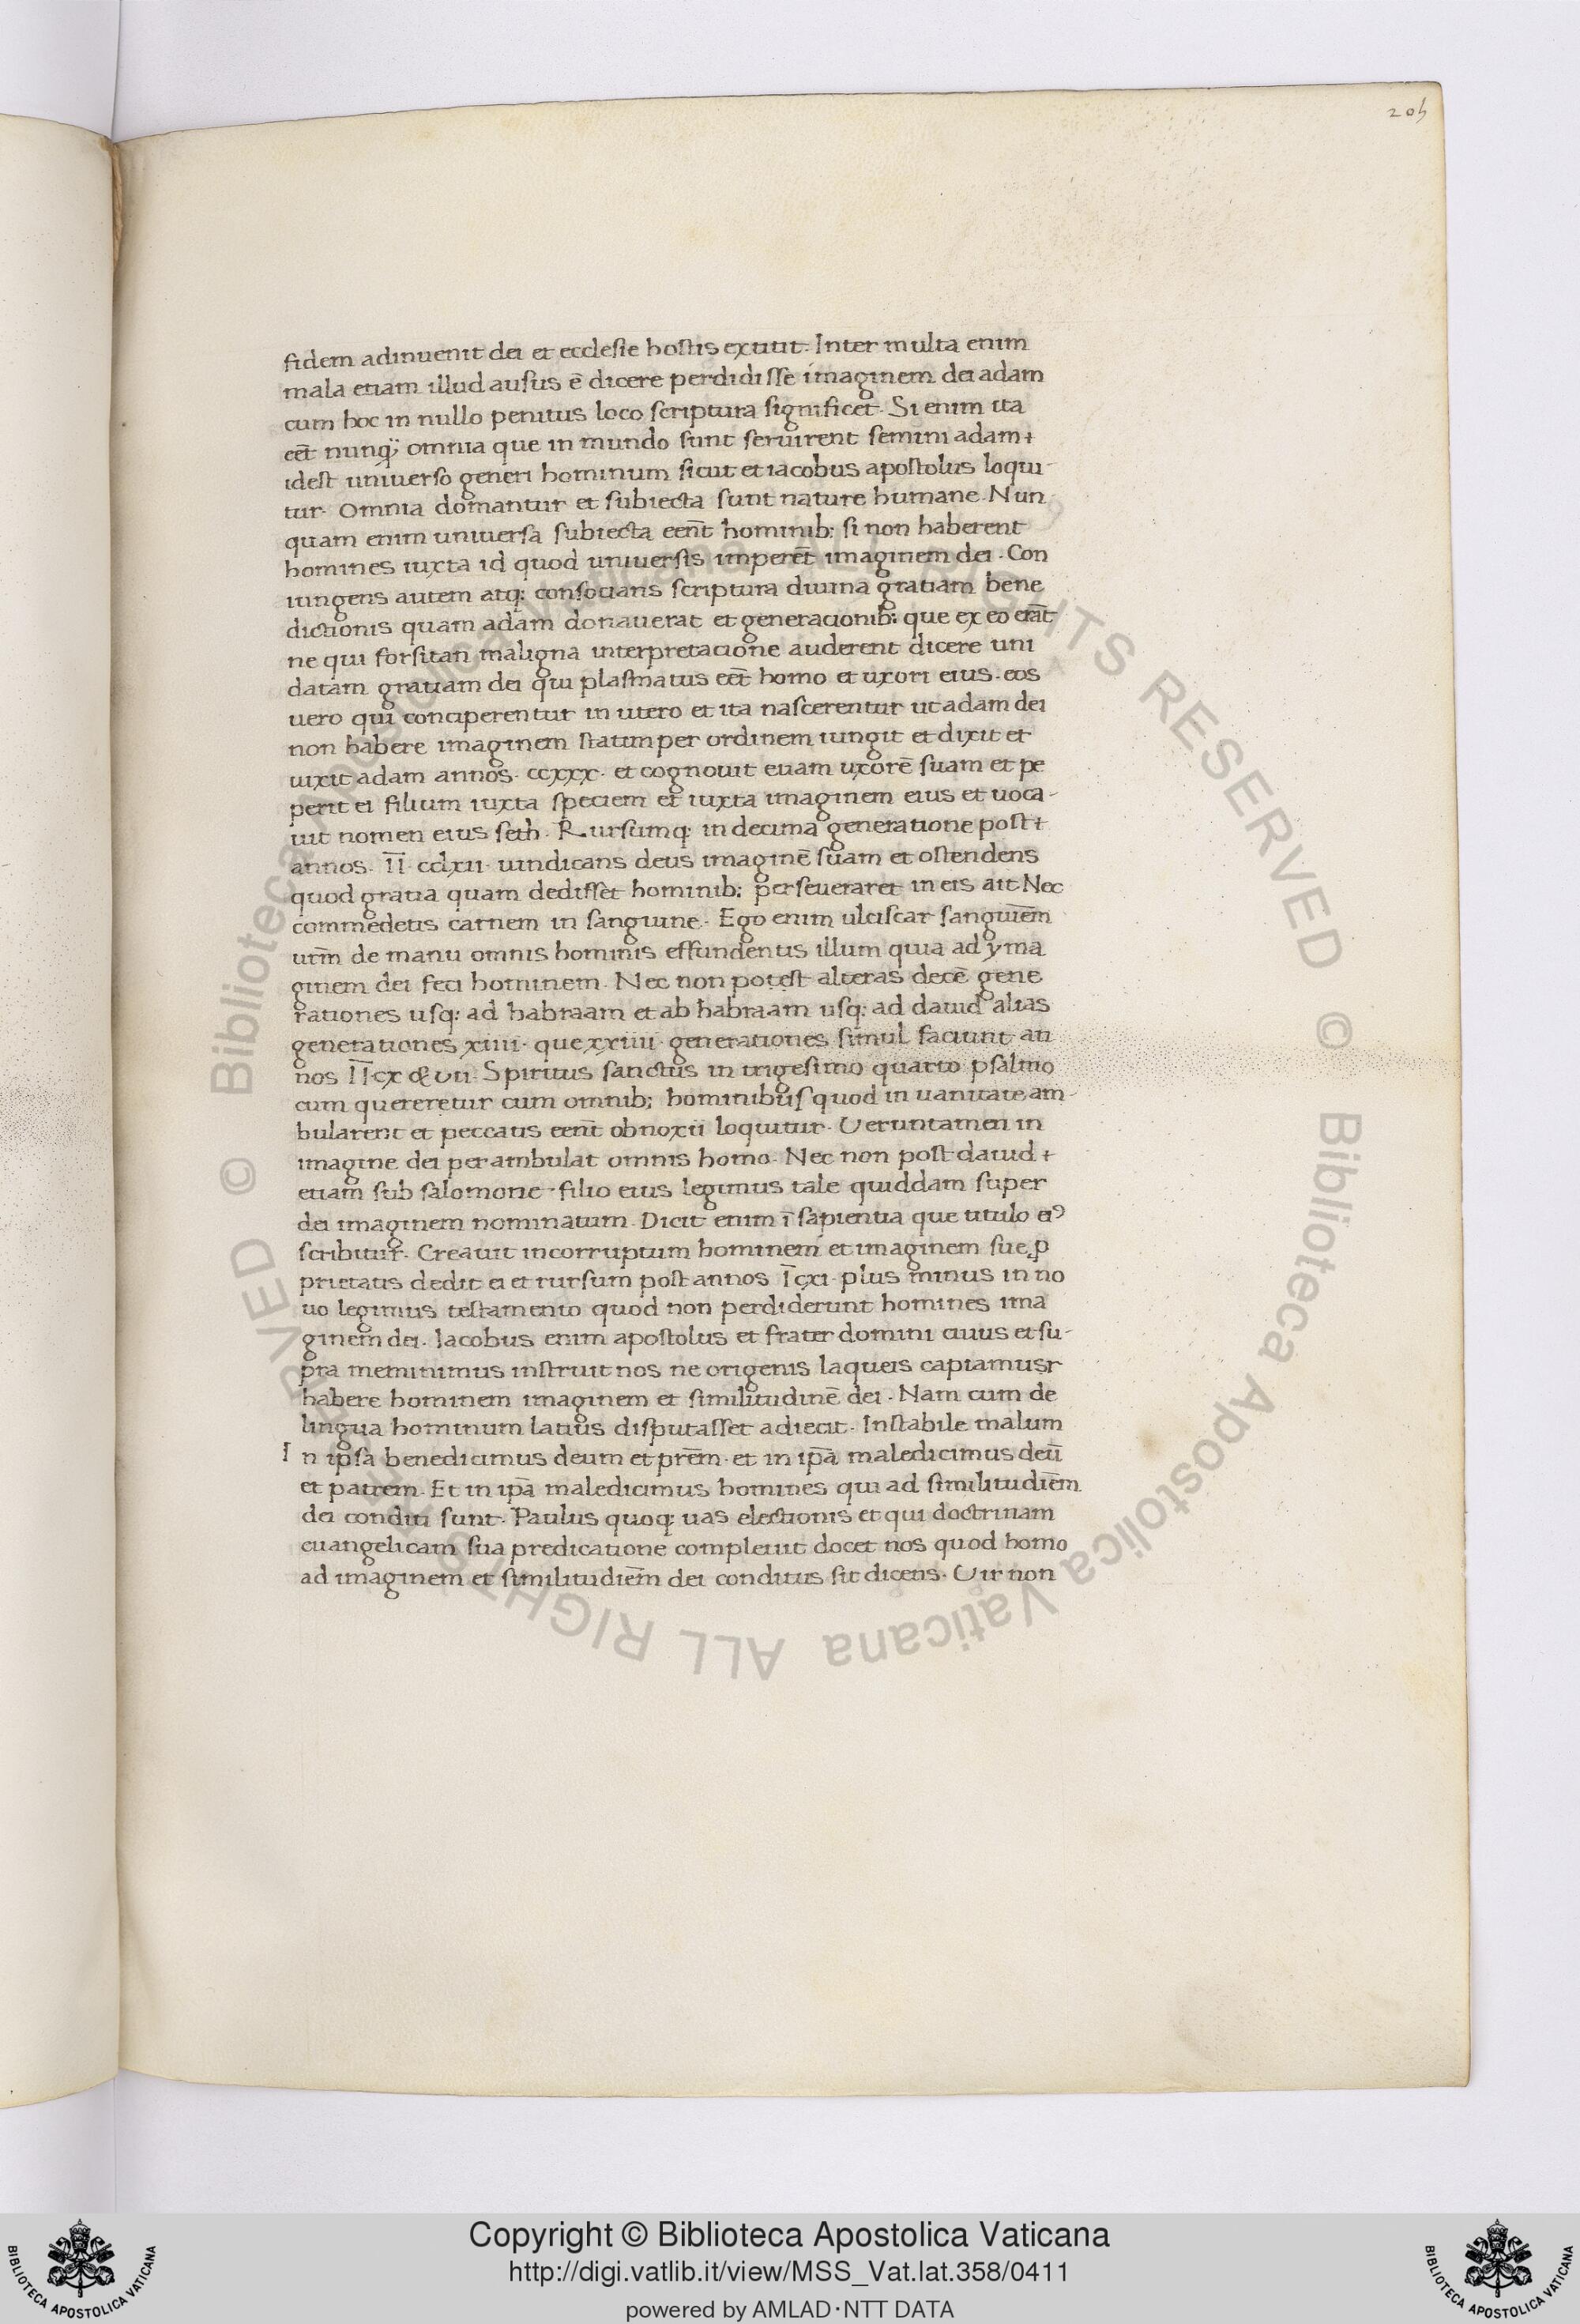 205
fidem adinuenit dei et ecclesie hostis extitit. Inter multa enim
mala etiam illud ausus ē dicere perdidisse imaginem dei adam
cum hoc in nullo penitus loco scriptura significet. Si enim ita
eēt nunq̃ omnia que in mundo sunt seruirent semini adam
idest uniuerso generi hominum sicut et iacobus apostolus loqui-
tur. Omnia domantur et subiecta sunt nature humane. Nun
quam enim uniuersa subiecta eent̄ hominib: si non haberent
homines iuxta id quod uniuersis imperet̄ imaginem dei. Con
iungens autem atq: consocians scriptura diuina gratiam bene
dictionis quam adam donauerat et generacionib: que ex eo erāt
ne qui forsitan maligna interpretacione auderent dicere uni
datam gratiam dei qui plasmatus eēt homo et uxori eius. eos
uero qui conciperentur in utero et ita nascerentur ut adam dei
non habere imaginem statim per ordinem iungit et dixit et
uixit adam annos. ccxxx. et cognouit euam uxorē suam et pe
perit ei filium iuxta speciem et iuxta imaginem eius et uoca-
uit nomen eius seth. Rursumq: in decima generatione post
annos. I̅I̅. cclxii. uindicans deus imaginē suam et ostendens
quod gratia quam dedisset hominib: perseueraret in eis ait Nec
commedetis carnem in sanguine. Ego enim ulciscar sanguiēm
urm̄ de manu omnis hominis effundentis illum quia ad yma
ginem dei feci hominem. Nec non potest alteras decē gene
rationes usq: ad habraam et ab habraam usq: ad dauid alias
generationes xiiii. que xxiiii. generationes simul faciunt an
nos I̅I̅.cx & uii. Spiritus sanctus in trigesimo quarto psalmo
cum quereretur cum omnib; hominibus quod in uanitate am-
bularent et peccatis eent̄ obnoxii loquitur. Ueruntamen in
imagine dei perambulat omnis homo. Nec non post dauid
etiam sub salomone. filio eius legimus tale quiddam super
dei imaginem nominatum. Dicit enim ī sapientia que titulo ei⁹
scribitur. Creauit incorruptum hominem et imaginem sue p̱
prietatis dedit ei et rursum post annos I̅cxi. plus minus in no
uo legimus testamento quod non perdiderunt homines ima
ginem dei. Iacobus enim apostolus et frater domini cuius et su-
pra meminimus instruit nos ne origenis laqueis capiamusr
habere hominem imaginem et similitudinē dei. Nam cum de
lingua hominum latius disputasset adiecit. Instabile malum
In ipsa benedicimus deum et prēm. et in ip̄a maledicimus deū
et patrem. Et in ip̄a maledicimus homines qui ad similitudiēm
dei conditi sunt. Paulus quoq: uas electionis et qui doctrinam
euangelicam sua predicatione compleuit docet nos quod homo
ad imaginem et similitudiēm dei conditus sit dicens. Uir non
© Biblioteca Apostolica Vaticana ALL RIGHTS RESERVED © Biblioteca Apostolica Vaticana ALL RIGHTS RESERVED
Copyright © Biblioteca Apostolica Vaticana
http://digi.vatlib.it/view/MSS_Vat.lat.358/0411
powered by AMLAD·NTT DATA
BIBLIOTECA APOSTOLICA VATICANA
BIBLIOTECA APOSTOLICA VATICANA